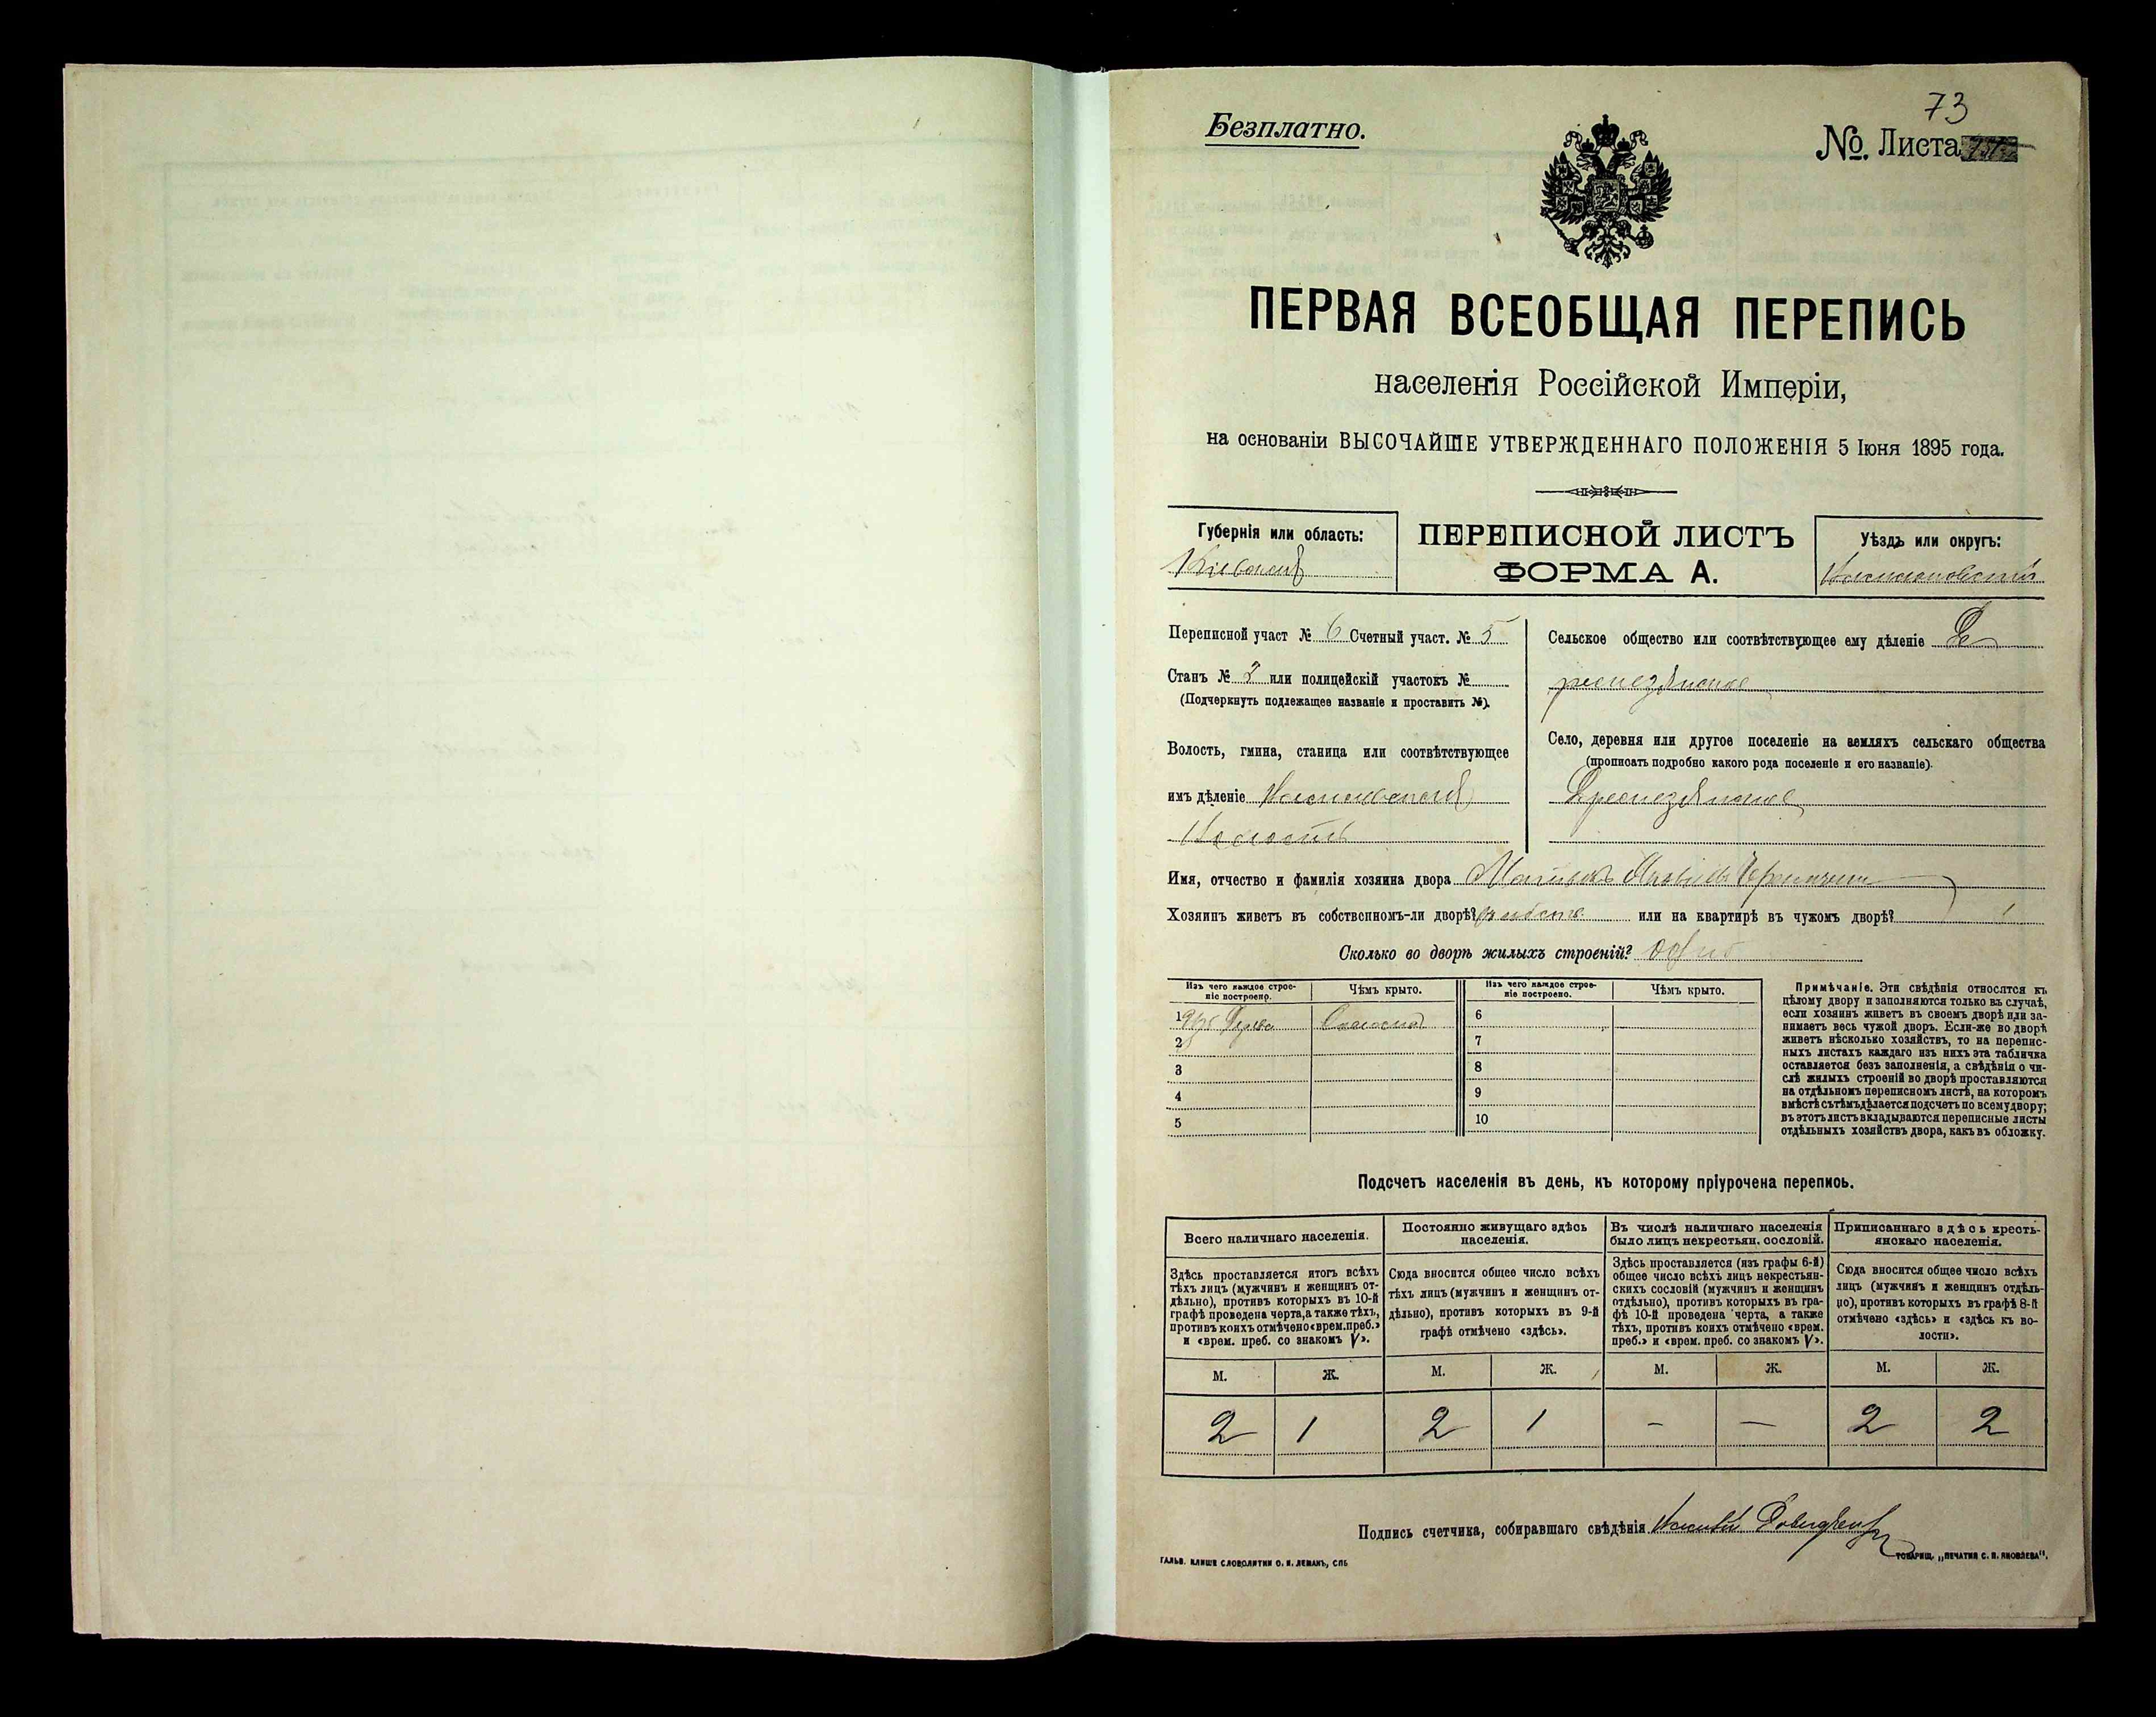 73
Безплатно.
№. Листа
ПЕРВАЯ ВСЕОБЩАЯ ПЕРЕПИСЬ
населенія Россійской Имперіи,
на основаніи ВЫСОЧАЙШЕ УТВЕРЖДЕННАГО ПОЛОЖЕНІЯ 5 Іюня 1895 года.
Губернія или область:
Кіевская
ПЕРЕПИСНОЙ ЛИСТЪ
ФОРМА А.
Уѣздъ или округъ:
Переписной участ № 6 Счетный участ. № 5
Станъ № 2 или полицейскій участокъ №
(Подчеркнуть подлежащее названіе и проставить №).
Волость, гмина, станица или соотвѣтствующее
имъ дѣленіе
Волость
Сельское общество или соотвѣтствующее ему дѣленіе
Село, деревня или другое поселеніе на земляхъ сельскаго общества
(прописать подробно какого рода поселеніе и его названіе).
Имя, отчество и фамилія хозяина двора
Хозяинъ живетъ въ собственномъ-ли дворѣ? или на квартирѣ въ чужомъ дворѣ?
Сколько во дворѣ жилыхъ строеній? одно
Изъ чего каждое строе-
ніе построено.
Чѣмъ крыто.
Изъ чего каждое строе-
ніе построено.
Чѣмъ крыто.
1 Изъ дерева Соломой
6
2
7
3
8
4
9
5
10
Примѣчаніе. Эти свѣдѣнія относятся къ
цѣлому двору и заполняются только въ случаѣ,
если хозяинъ живетъ въ своемъ дворѣ или за-
нимаетъ весь чужой дворъ. Если-же во дворѣ
живетъ нѣсколько хозяйствъ, то на перепис-
ныхъ листахъ каждаго изъ нихъ эта табличка
оставляется безъ заполненія, а свѣдѣнія о чи-
слѣ жилыхъ строеній во дворѣ проставляются
на отдѣльномъ переписномъ листѣ, на которомъ
вмѣстѣ съ тѣмъ дѣлается подсчетъ по всему двору;
въ этотъ листъ вкладываются переписные листы
отдѣльныхъ хозяйствъ двора, какъ въ обложку.
Подсчетъ населенія въ день, къ которому пріурочена перепись.
Всего наличнаго населенія.
Здѣсь проставляется итогъ всѣхъ
тѣхъ лицъ (мужчинъ и женщинъ от-
дѣльно), противъ которыхъ въ 10-й
графѣ проведена черта, а также тѣхъ,
противъ коихъ отмѣчено «врем. преб.»
и «врем. преб. со знакомъ V».
Постоянно живущаго здѣсь
населенія.
Сюда вносится общее число всѣхъ
тѣхъ лицъ (мужчинъ и женщинъ от-
дѣльно), противъ которыхъ въ 9-й
графѣ отмѣчено «здѣсь».
Въ числѣ наличнаго населенія
было лицъ некрестьян. сословій.
Здѣсь проставляется (изъ графы 6-й)
общее число всѣхъ лицъ некрестьян-
скихъ сословій (мужчинъ и женщинъ
отдѣльно), противъ которыхъ въ гра-
фѣ 10-й проведена черта, а также
тѣхъ, противъ коихъ отмѣчено «врем.
преб.» и «врем. преб. со знакомъ V».
Приписаннаго здѣсь кресть-
янскаго населенія.
Сюда вносится общее число всѣхъ
лицъ (мужчинъ и женщинъ отдѣль-
но), противъ которыхъ въ графѣ 8-й
отмѣчено «здѣсь» и «здѣсь къ во-
лости».
М. Ж. М. Ж. М. Ж. М. Ж.
2 1 2 1 – – 2 2
Подпись счетчика, собиравшаго свѣдѣнія
ГАЛЬВ. КЛИШЕ СЛОВОЛИТНИ О. И. ЛЕМАНЪ, СПБ
ТОВАРИЩ. „ПЕЧАТНЯ С. П. ЯКОВЛЕВА".